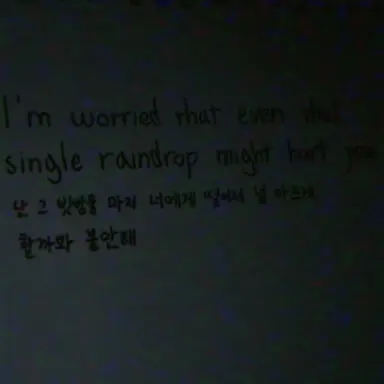 I'm worried rhat even that
single raindrop might hurt you
난 그 빗방울 마저 너에게 떨어져 널 아프게
할까봐 불안해